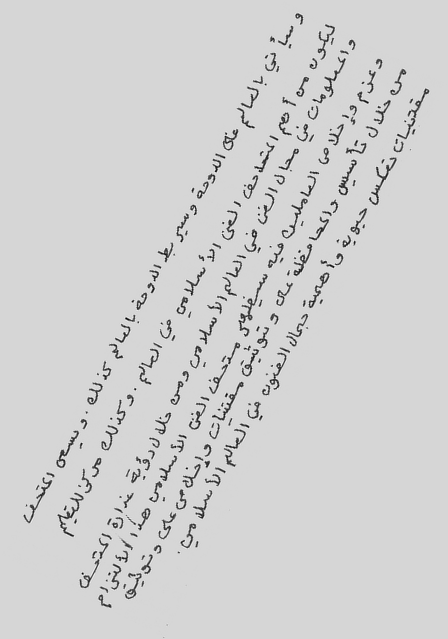 وسيأتي بالعالم على الدوحة وسيربط الدوحة بالعالم كذلك. ويسعى المتحف
ليكون من أهم المتاحف الفن الأسلامي في العالم. وكذلك مركز للتعليم
والمعلومات في مجال الفن في العالم الأسلامي ومن خلال رؤية غدارة المتحف
وعزم وإخلاص العاملين فيه سيظهر متحف الفن الأسلامي هذا الألتزام
من خلال تأسيس والمحافظة على وتوثيق مقتنيات وإخلاص على وتوثيق
مقتنيات تعكس حيوية وأهمية جمال الفنون في العالم الأسلامي.